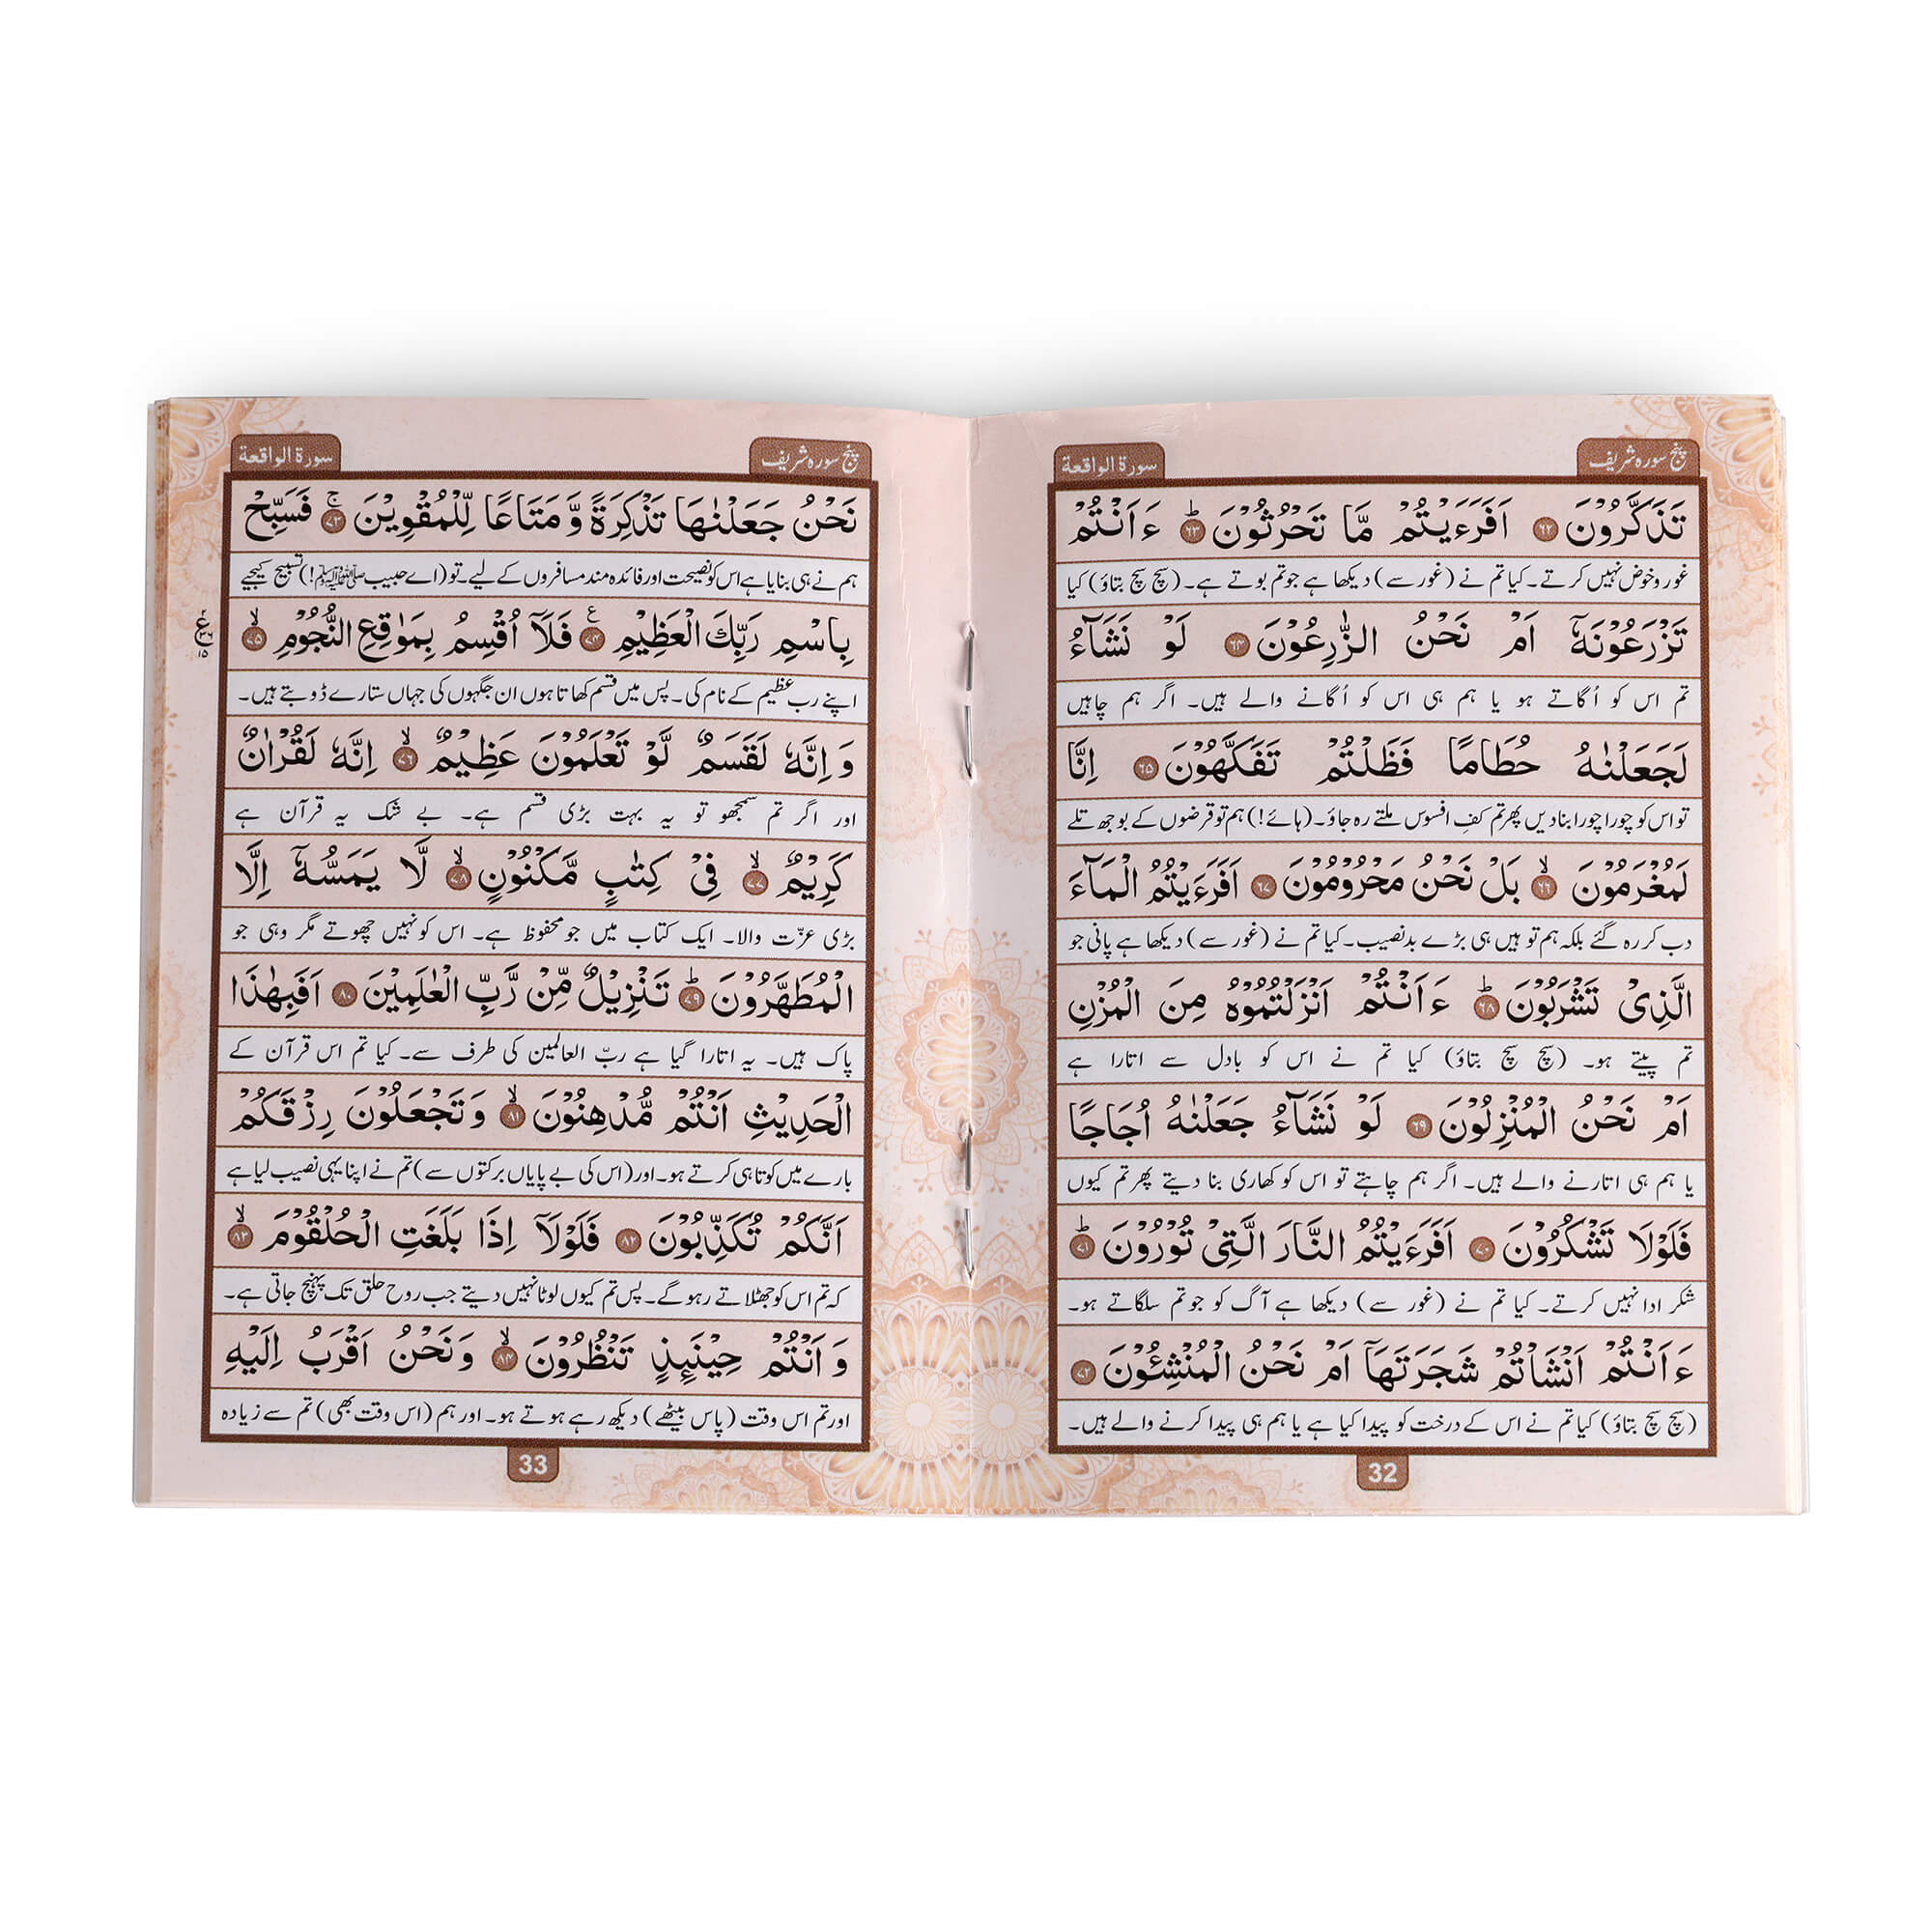 پنج سورہ شریف
سورۃ الواقعۃ
تَذَكَّرُوْنَ ۶۲ اَفَرَءَيْتُمْ مَّا تَحْرُثُوْنَ ؕ ۶۳ ءَاَنْتُمْ
غور و خوض نہیں کرتے۔ کیا تم نے (غور سے) دیکھا ہے جو تم بوتے ہے۔ (سچ سچ بتاؤ) کیا
تَزْرَعُوْنَهٗۤ اَمْ نَحْنُ الزّٰرِعُوْنَ ۶۴ لَوْ نَشَآءُ
تم اس کو اُگاتے ہو یا ہم ہی اس کو اُگانے والے ہیں۔ اگر ہم چاہیں
لَجَعَلْنٰهُ حُطَامًا فَظَلْتُمْ تَفَكَّهُوْنَ ۶۵ اِنَّا
تو اس کو چورا چورا بنا دیں پھر تم کفِ افسوس ملتے رہ جاؤ۔ (ہائے!) ہم تو قرضوں کے بوجھ تلے
لَمُغْرَمُوْنَ ۙ ۶۶ بَلْ نَحْنُ مَحْرُوْمُوْنَ ۶۷ اَفَرَءَيْتُمُ الْمَآءَ
دب کر رہ گئے بلکہ ہم تو ہیں ہی بڑے بدنصیب۔ کیا تم نے (غور سے) دیکھا ہے پانی جو
الَّذِيْ تَشْرَبُوْنَ ؕ ۶۸ ءَاَنْتُمْ اَنْزَلْتُمُوْهُ مِنَ الْمُزْنِ
تم پیتے ہو۔ (سچ سچ بتاؤ) کیا تم نے اس کو بادل سے اتارا ہے
اَمْ نَحْنُ الْمُنْزِلُوْنَ ۶۹ لَوْ نَشَآءُ جَعَلْنٰهُ اُجَاجًا
یا ہم ہی اتارنے والے ہیں۔ اگر ہم چاہتے تو اس کو کھاری بنا دیتے پھر تم کیوں
فَلَوْلَا تَشْكُرُوْنَ ۷۰ اَفَرَءَيْتُمُ النَّارَ الَّتِيْ تُوْرُوْنَ ؕ ۷۱
شکر ادا نہیں کرتے۔ کیا تم نے (غور سے) دیکھا ہے آگ کو جو تم سلگاتے ہو۔
ءَاَنْتُمْ اَنْشَاْتُمْ شَجَرَتَهَاۤ اَمْ نَحْنُ الْمُنْشِـُٔوْنَ ۷۲
(سچ سچ بتاؤ) کیا تم نے اس کے درخت کو پیدا کیا ہے یا ہم ہی پیدا کرنے والے ہیں۔
32
پنج سورہ شریف
سورۃ الواقعۃ
نَحْنُ جَعَلْنٰهَا تَذْكِرَةً وَّمَتَاعًا لِّلْمُقْوِيْنَ ۚ ۷۳ فَسَبِّحْ
ہم نے ہی بنایا ہے اس کو نصیحت اور فائدہ مند مسافروں کے لیے۔ تو (اے حبیب ﷺ!) تسبیح کیجیے
بِاسْمِ رَبِّكَ الْعَظِيْمِ ۷۴ ع فَلَاۤ اُقْسِمُ بِمَوٰقِعِ النُّجُوْمِ ۙ ۷۵
اپنے رب عظیم کے نام کی۔ پس میں قسم کھاتا ہوں ان جگہوں کی جہاں ستارے ڈوبتے ہیں۔
وَاِنَّهٗ لَقَسَمٌ لَّوْ تَعْلَمُوْنَ عَظِيْمٌ ۙ ۷۶ اِنَّهٗ لَقُرْاٰنٌ
اور اگر تم سمجھو تو یہ بہت بڑی قسم ہے۔ بے شک یہ قرآن ہے
كَرِيْمٌ ۙ ۷۷ فِيْ كِتٰبٍ مَّكْنُوْنٍ ۙ ۷۸ لَّا يَمَسُّهٗۤ اِلَّا
بڑی عزّت والا۔ ایک کتاب میں جو محفوظ ہے۔ اس کو نہیں چھوتے مگر وہی جو
الْمُطَهَّرُوْنَ ؕ ۷۹ تَنْزِيْلٌ مِّنْ رَّبِّ الْعٰلَمِيْنَ ۸۰ اَفَبِهٰذَا
پاک ہیں۔ یہ اتارا گیا ہے ربّ العالمین کی طرف سے۔ کیا تم اس قرآن کے
الْحَدِيْثِ اَنْتُمْ مُّدْهِنُوْنَ ۙ ۸۱ وَتَجْعَلُوْنَ رِزْقَكُمْ
بارے میں کوتاہی کرتے ہو۔ اور (اس کی بے پایاں برکتوں سے) تم نے اپنا یہی نصیب لیا ہے
اَنَّكُمْ تُكَذِّبُوْنَ ۸۲ فَلَوْلَاۤ اِذَا بَلَغَتِ الْحُلْقُوْمَ ۙ ۸۳
کہ تم اس کو جھٹلاتے رہو گے۔ پس تم کیوں لوٹا نہیں دیتے جب روح حلق تک پہنچ جاتی ہے۔
وَاَنْتُمْ حِيْنَىِٕذٍ تَنْظُرُوْنَ ۙ ۸۴ وَنَحْنُ اَقْرَبُ اِلَيْهِ
اور تم اس وقت (پاس بیٹھے) دیکھ رہے ہوتے ہو۔ اور ہم (اس وقت بھی) تم سے زیادہ
33